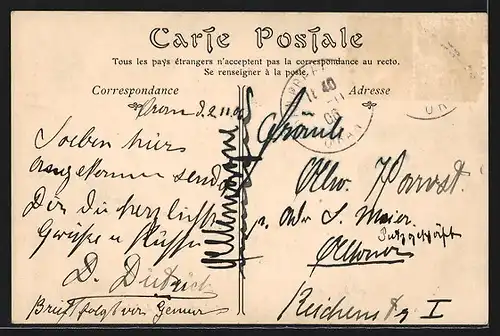 Carte Postale
Tous les pays étrangers n'acceptent pas la correspondance au recto.
Se renseigner à la poste.
Correspondance
Adresse
Oran d. 2.11.05
Soeben hier
angekommen sende
Dir die herzlichsten
Grüsse u Küsse
D. Dietrich
Brief folgt von Genua
Allemagne
Fräulein
p. Adr S. Maier
Putzgeschäft
Altona
Reichenstr I
ORAN